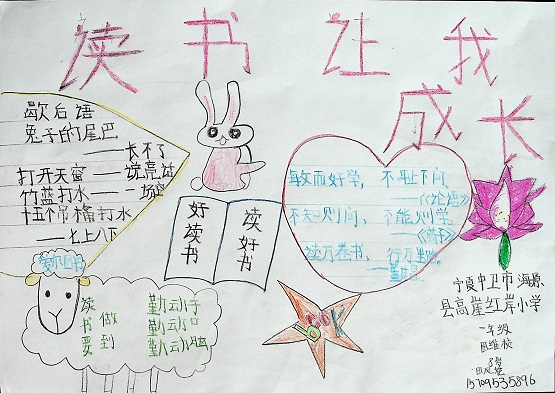 读书让我
成长
歇后语
兔子的尾巴
——长不了
打开天窗——说亮话
竹篮打水——一场空
十五个吊桶打水
——七上八下
好读书
读好书
敏而好学，不耻下问
——《论语》
不知则问，不能则学
——《荀子》
读万卷书，行万里路
爱读书
读书要
做到
勤动手
勤动口
勤动脑
BOOK
宁夏中卫市海原
县高崖红岸小学
一年级
8岁